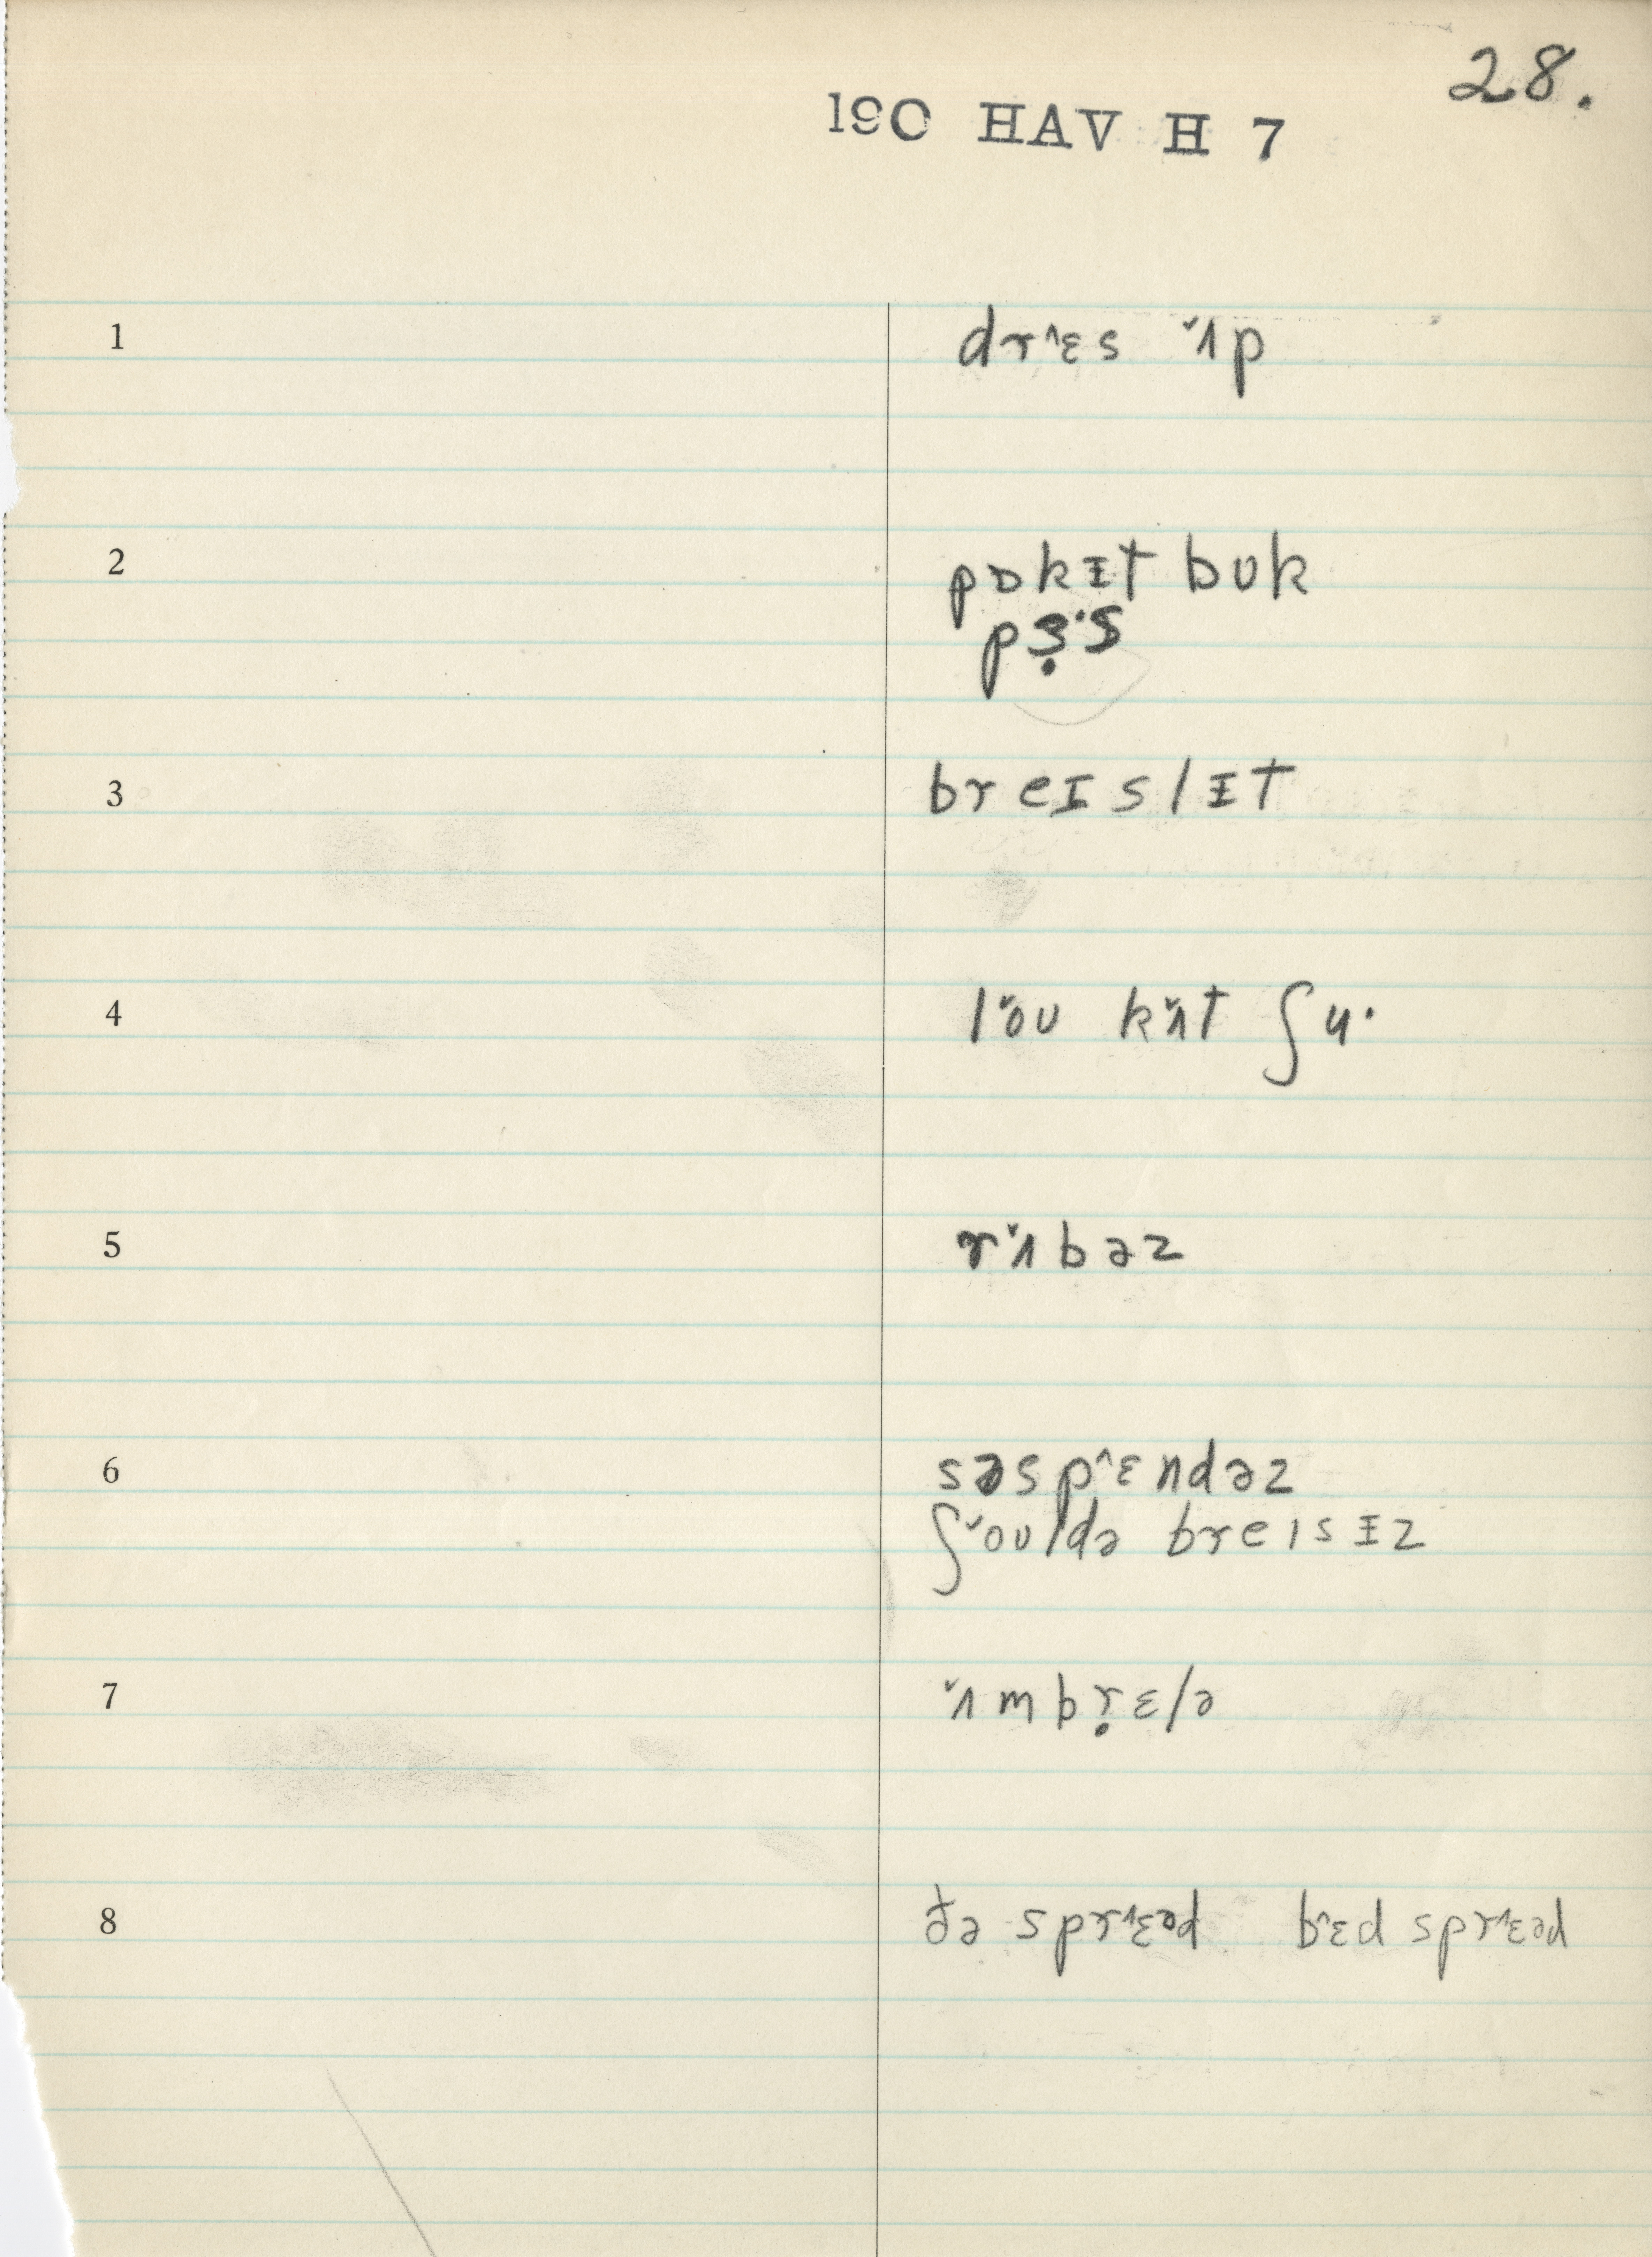 28.
190 HAV H 7
1 drˆɛs ˇʌp
2 pɒkɪt bʊk
pɜ̣·s
3 breɪslɪt
4 lˇoʊ kˇʌt ʃu·
5 rˇʌbəz
6 səspˆɛndəz
ʃˇoʊldə breɪsɪz
7 ˇʌmbṛɛlə
8 ðə sprˆɛəd bˆɛd sprˆɛəd